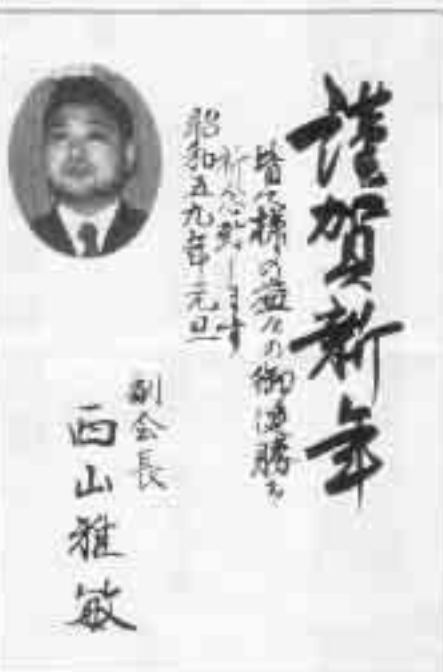 謹賀新年
皆々様の益々の御健勝を
祈念致します
昭和五九年元旦
副会長
西山雅敏